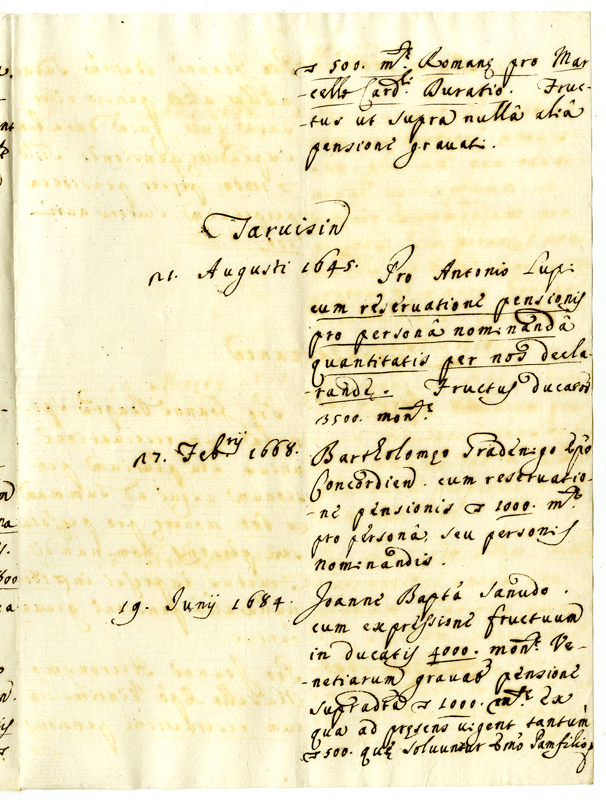 500. m.tæ Romanę pro Mar-
-cello Card.li Duratio. Fruc-
-tus ut supra nullâ aliâ
pensione gravati.
Tarvisin
21. Augusti 1645. Pro Antonio Lupi
cum reservatione pensionis
pro personâ nominandâ
quantitatis per nos decla-
-randę. Fructus ducatos
3500. mon.tę
27. Feb.rij 1668. Bartholomęo Gradenigo Ep̃o
Concordien. cum reservatio-
-ne pensionis 1000. m.tę
pro personâ, seu personis
nominandis.
19. Junij 1684. Joanne Bapta Sanudo.
cum expressione fructuum
in ducatis 4000. mon.tę Ve-
-netiarum gravat pensione
supradra 1000. m.tę Ex
qua ad pręsens vigent tantum
500. quę solvuntur Emo Pamfilio